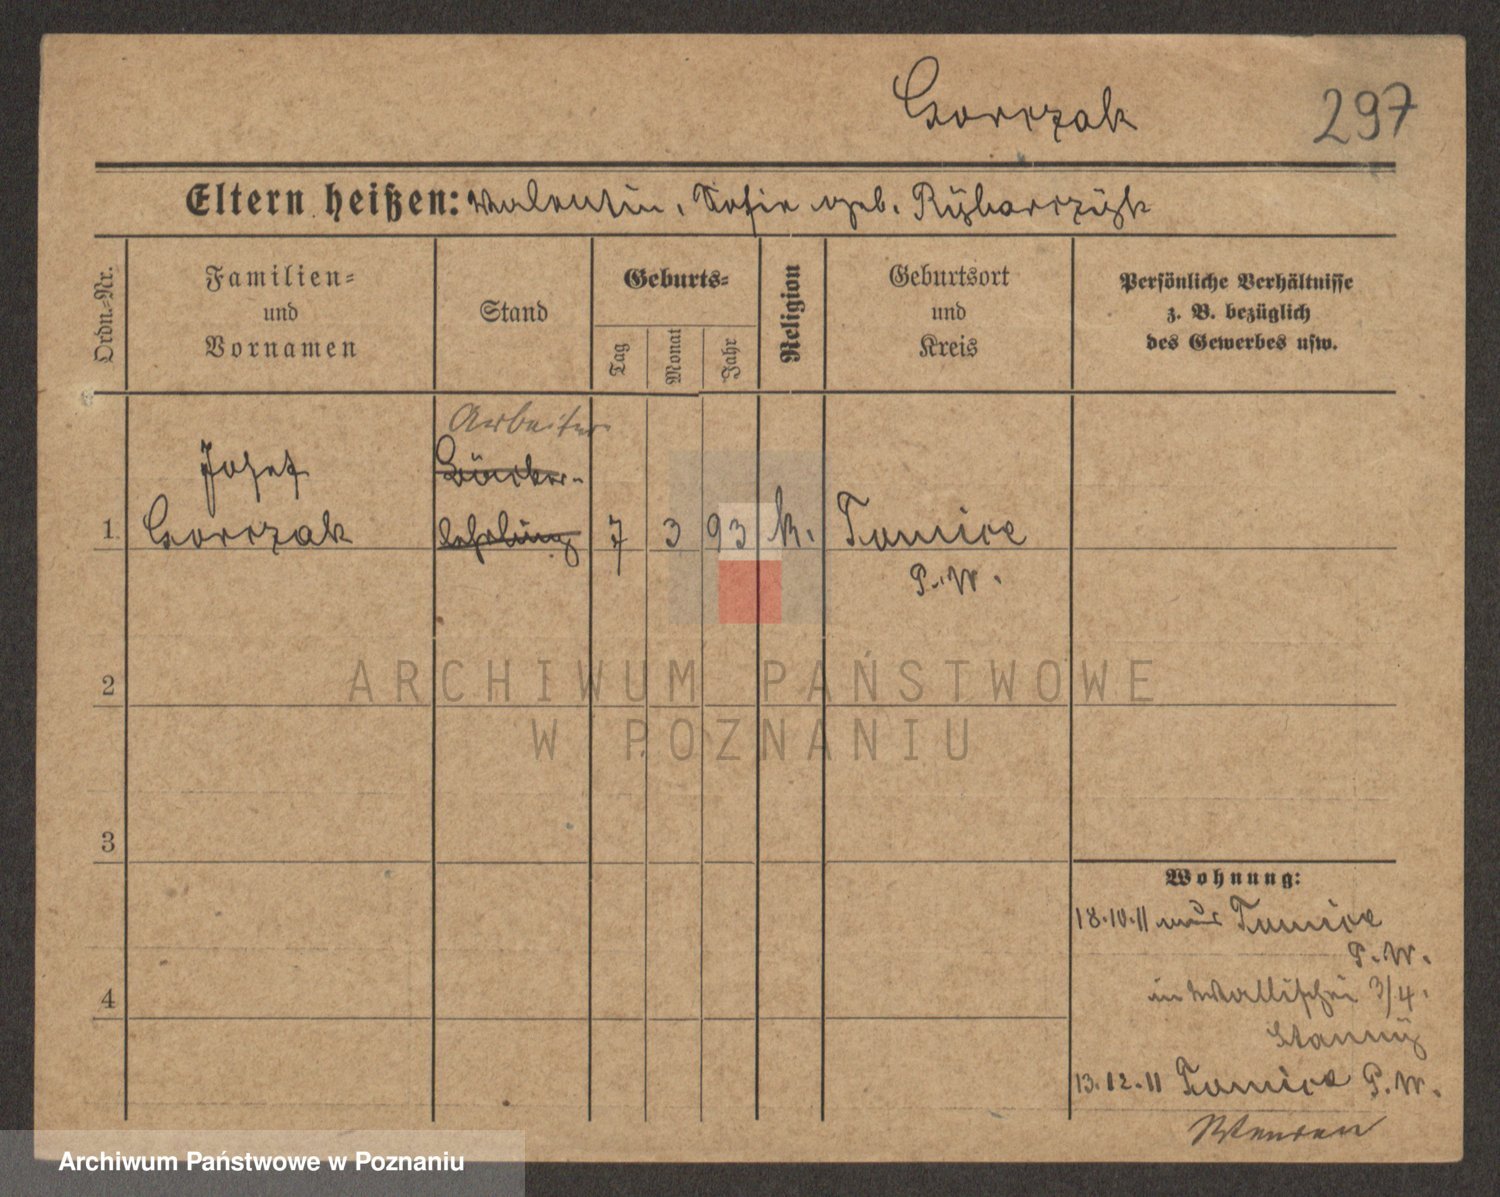 Gorczak
297
Eltern heißen: Valentin, Sofie geb. Rÿbarczÿk
Ordn.-Nr.
Familien-
und
Vornamen
Stand
Geburts-
Tag
Monat
Jahr
Religion
Geburtsort
und
Kreis
Persönliche Verhältnisse
z. B. bezüglich
des Gewerbes usw.
Arbeiter
Josef
Bäcker-
1 Gorczak lehrling 7 3 93 k. Tomice
P.W.
2
3
4
Wohnung:
18.10.11 aus Tomice
P.W.
in Wallischei 3/4.
13.12.11 Tomice P.W.
ARCHIWUM PAŃSTWOWE
W POZNANIU
Archiwum Państwowe w Poznaniu